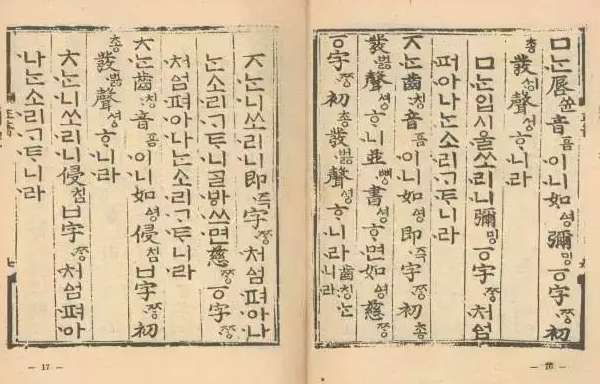 ㅁᄂᆞᆫ唇쓘音흠이니如ᅀᅧᆼ彌밍ㆆ字ᄍᆞᆼ初
총發벓聲셩ᄒᆞ니라
ㅁᄂᆞᆫ입시울쏘리니彌밍ㆆ字ᄍᆞᆼ처ᅀᅥᆷ
펴아나ᄂᆞᆫ소리ᄀᆞᄐᆞ니라
ㅈᄂᆞᆫ齒칭音흠이니如ᅀᅧᆼ即즉字ᄍᆞᆼ初총
發벓聲셩ᄒᆞ니並뼝書셩ᄒᆞ면如ᅀᅧᆼ慈ᄍᆞᆼ
ㆆ字ᄍᆞᆼ初총發벓聲셩ᄒᆞ니라齒칭ᄂᆞᆫ니라
— 16 —
ㅈᄂᆞᆫ니쏘리니即즉字ᄍᆞᆼ처ᅀᅥᆷ펴아나
ᄂᆞᆫ소리ᄀᆞᄐᆞ니ᄀᆞᆯᄫᅡ쓰면慈ᄍᆞᆼㆆ字ᄍᆞᆼ
처ᅀᅥᆷ펴아나ᄂᆞᆫ소리ᄀᆞᄐᆞ니라
ㅊᄂᆞᆫ齒칭音흠이니如ᅀᅧᆼ侵침ㅂ字ᄍᆞᆼ初
총發벓聲셩ᄒᆞ니라
ㅊᄂᆞᆫ니쏘리니侵침ㅂ字ᄍᆞᆼ처ᅀᅥᆷ펴아
나ᄂᆞᆫ소리ᄀᆞᄐᆞ니라
— 17 —